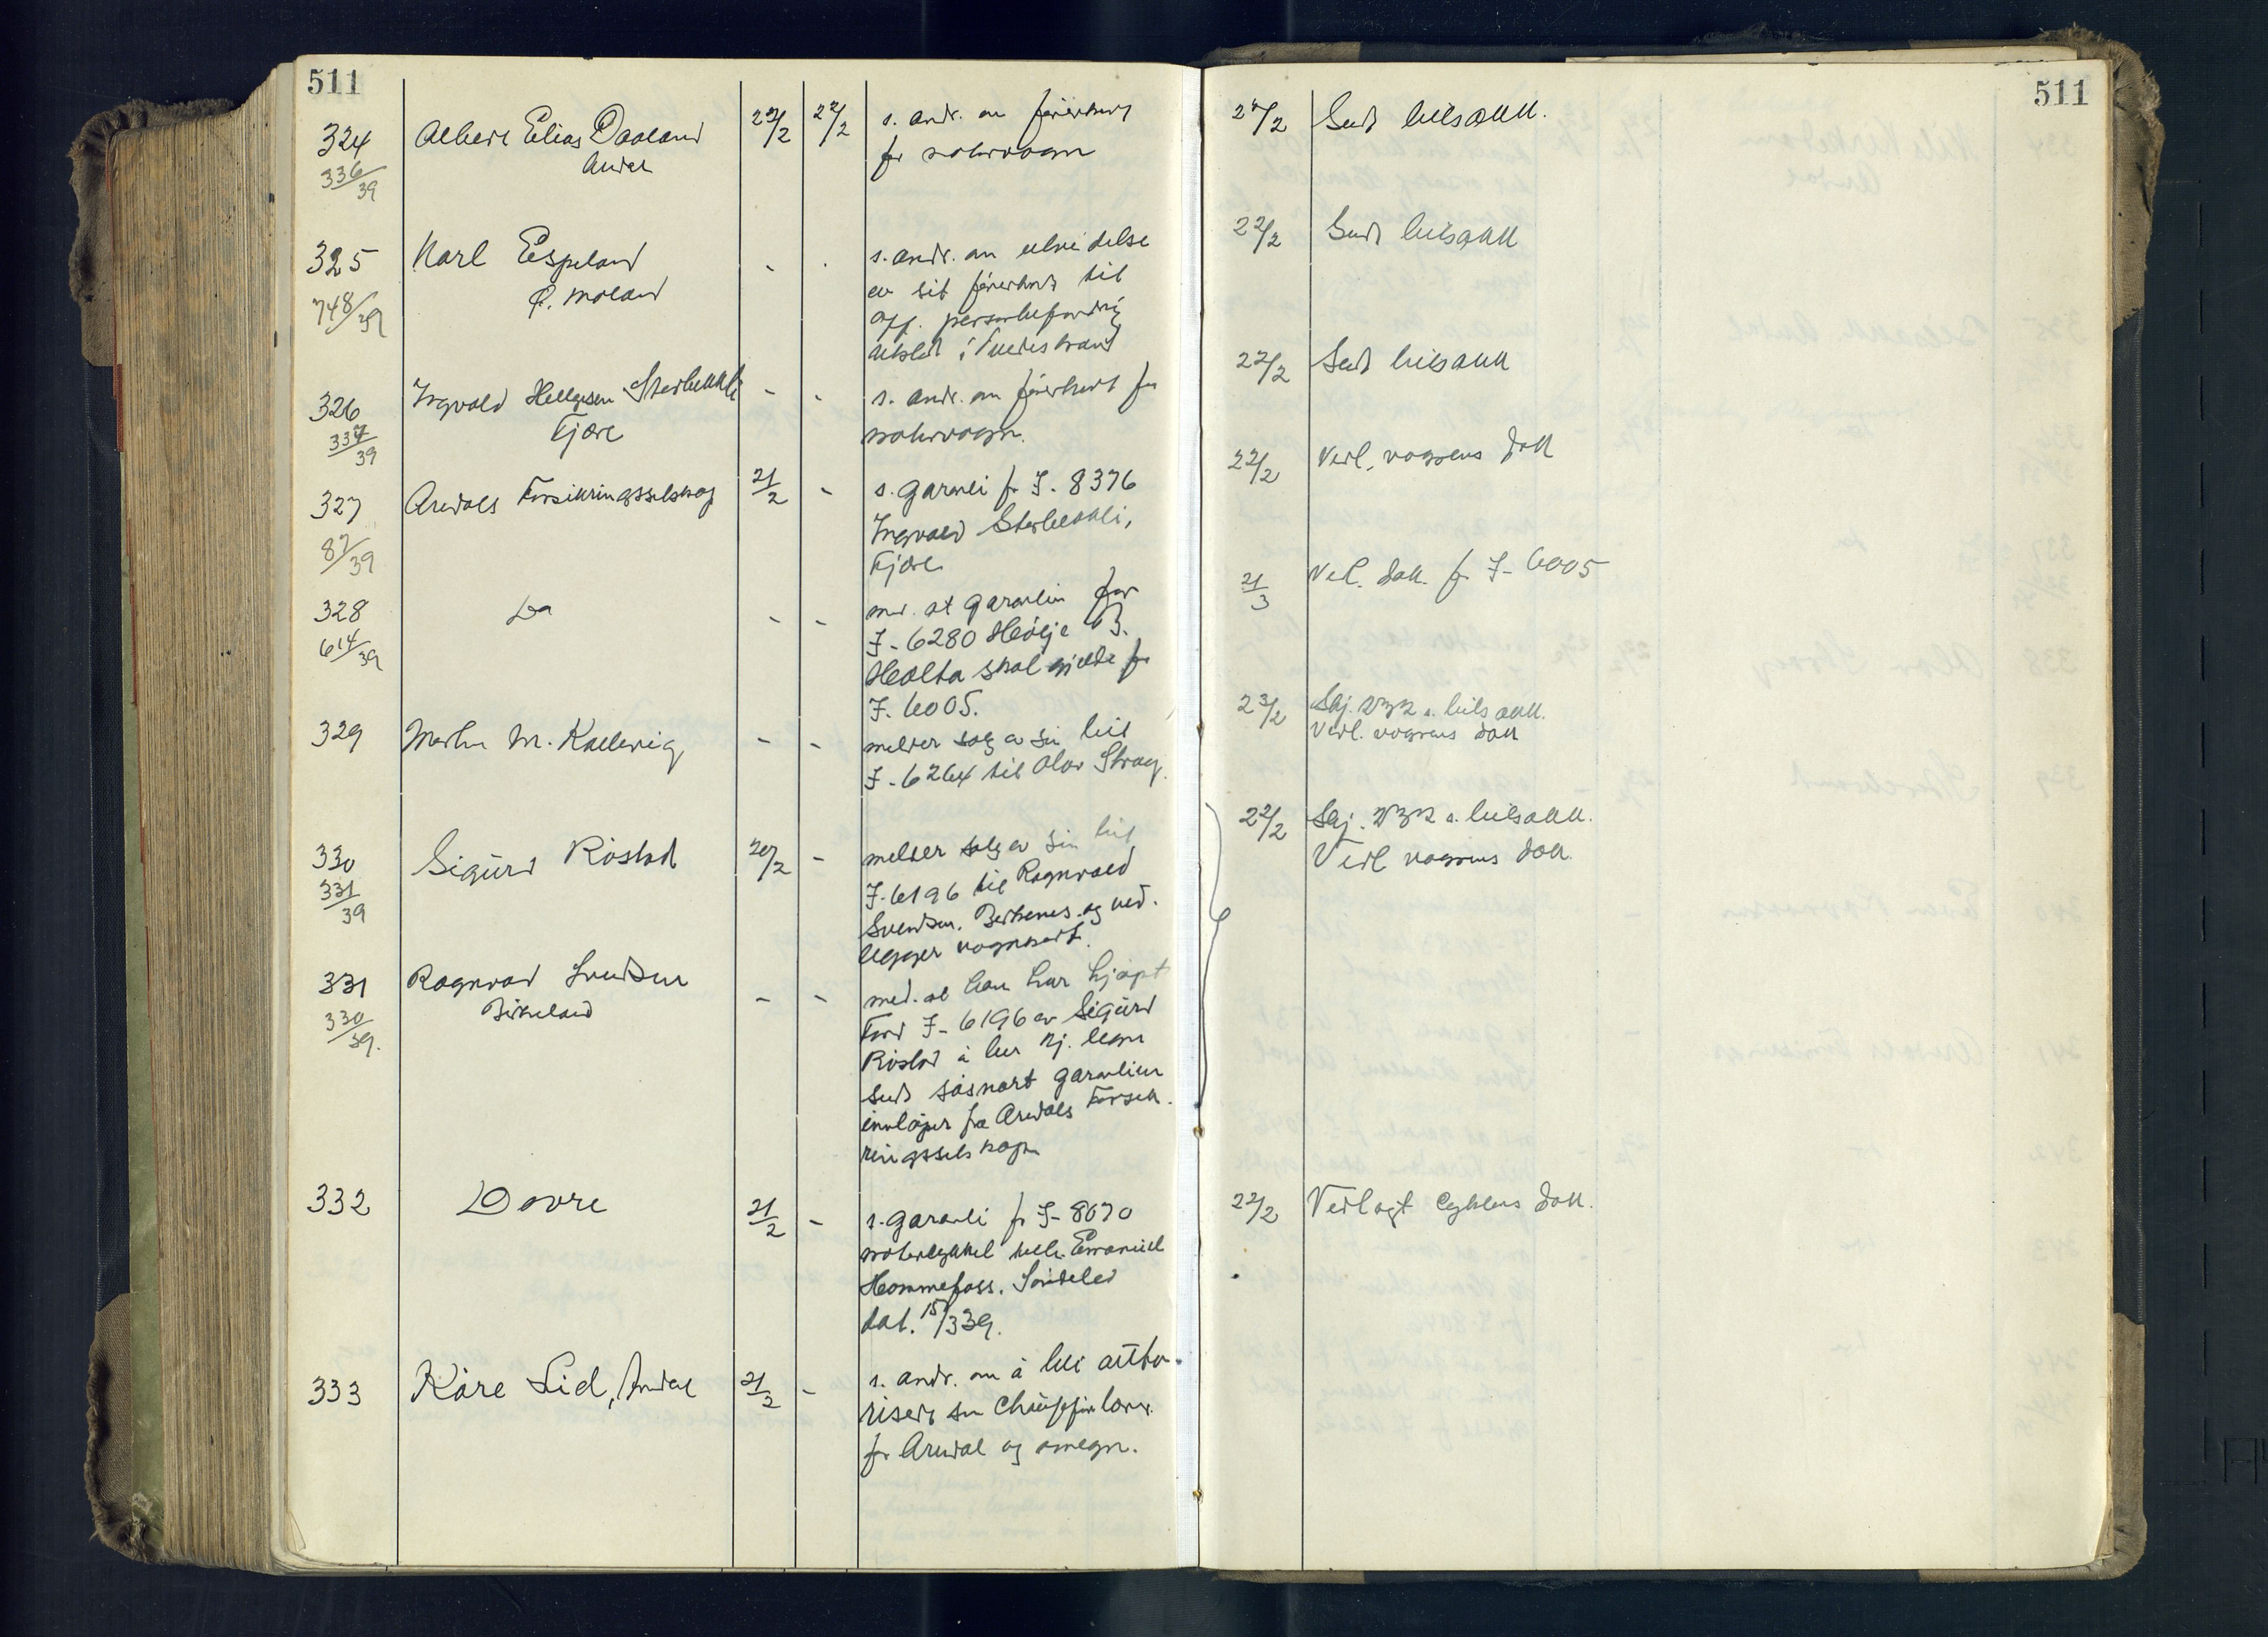 511
324
336/39
Albert Elias Daaland
Arendal
22/2
22/2
s. andr. om førerkort
for motorvogn
325
748/39
Karl Espeland
Ø. Moland
-
-
s. andr. om utvidelse
av sit førerkort til
off. personbefordring
utsted i Tvedestrand
326
337/39
Ingvald Hellgesen Sterbekkli
Fjære
-
-
s. andr. om førerkort for
motorvogn.
327
87/39
Arendals Forsikringsselskap
21/2
-
s. garanti for I-8376
Ingvald Sterbekkli,
Fjære
328
614/39
Do
-
-
md. at garantien for
I-6280 Helje B.
Holta skal gjelde for
I-6005.
329
Martin M. Kallevig
-
-
melder salg av sin bil
I-6264 til Olav Skraag.
330
331/39
Sigurd Röstad
20/2
-
melder salg av sin bil
I-6196 til Ragnvald
Svendsen, Birkenes og ved-
legger vognkort.
331
330/39.
Ragnvald Svendsen
Birkeland
-
-
med. at han har kjøpt
Ford I-6196 av Sigurd
Röstad å ber nj. legn
send såsnart garantien
innløper fra Arendals Forsik-
ringsselskap
332
Dovre
21/2
-
s. garanti for I-8070
motorcykkel tilh. Emanuel
Hommefoss, Söndeled
dat. 15/339.
333
Kåre Lid, Arendal
21/2
-
s. andr. om å bli autho-
risert som chaufførlærer
for Arendal og omegn.
511
22/2 Sendt bilsakk.
22/2 Sendt bilsakk
22/2 Sendt bilsakk
22/2 Vedl. vognens dok
21/3 Vedl. dok. for I-6005
23/2 Skj. t. bilsakk.
Vedl. vognens dok
22/2 Skj. t. bilsakk.
Vedl vognens dok.
22/2 Vedlagt cyklens dok.